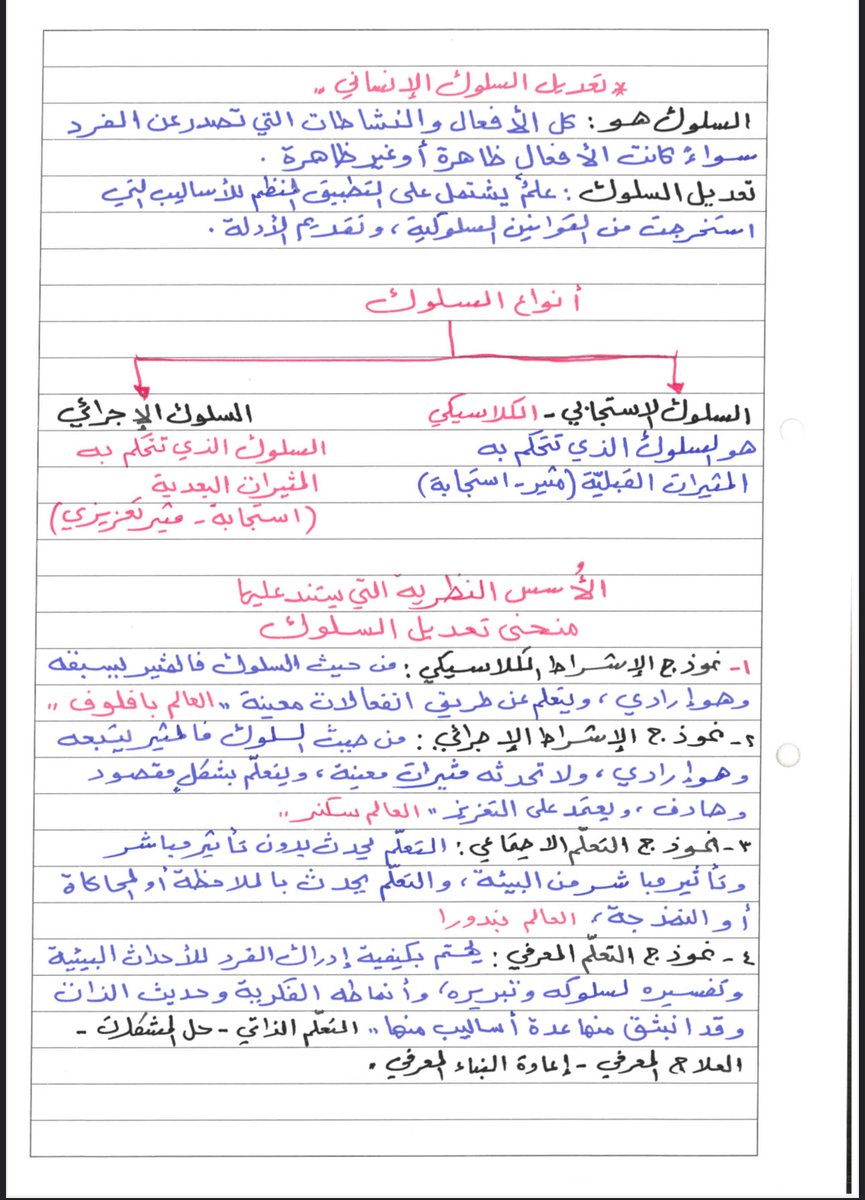 * تعديل السلوك الإنساني ,,
السلوك هو : كل الأفعال والنشاطات التي تصدر عن الفرد
سواءً كانت الأفعال ظاهرة أو غير ظاهرة .
تعديل السلوك : علمٌ يشتمل على التطبيق المنظم للأساليب التي
استخرجت من القوانين السلوكية ، وتقديم الأدلة .
أنواع السلوك
السلوك الاستجابي - الكلاسيكي
هو السلوك الذي تتحكم به
المثيرات القبليّة (مثير - استجابة)
السلوك الإجرائي
السلوك الذي تتحكم به
المثيرات البعدية
(استجابة - مثير تعزيزي)
الأُسس النظرية التي يستند عليها
منحنى تعديل السلوك
١- نموذج الإشراط الكلاسيكي : من حيث السلوك فالمثير يسبقه
وهو إرادي ، ويتعلم عن طريق انفعالات معينة ,, العالم بافلوف ,,
٢- نموذج الإشراط الإجرائي : من حيث السلوك فالمثير يتبعه
وهو إرادي ، ولا تحدثه مثيرات معينة ، ويتعلّم بشكلٍ مقصود
وهادف ، ويعتمد على التعزيز ,, العالم سكنر ,,
٣- نموذج التعلّم الاجتماعي : التعلّم يحدث بدون تأثير مباشر
وتأثير مباشر من البيئة ، والتعلّم يحدث بالملاحظة أو المحاكاة
أو النمذجة ، العالم بندورا
٤- نموذج التعلّم المعرفي : يهتم بكيفية إدراك الفرد للأحداث البيئية
وتفسيره لسلوكه وتبريره ، وأنماطه الفكرية وحديث الذات
وقد انبثق منها عدة أساليب منها ,, التعلّم الذاتي - حل المشكلات -
العلاج المعرفي - إعادة البناء المعرفي .